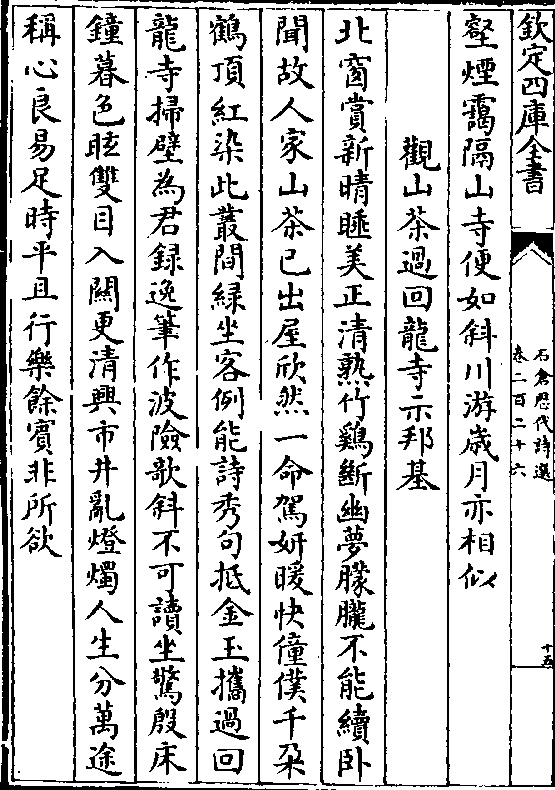 欽定四庫全書
石倉歷代詩選
卷二百二十六
十五
壑煙靄隔山寺便如斜川游歳月亦相似
觀山茶過回龍寺示邦基
北窗賞新晴睡美正清熟竹鷄斷幽夢朦朧不能續卧
聞故人家山茶已出屋欣然一命駕妍暖快僮僕千朶
鶴頂紅染此叢間緑坐客例能詩秀句抵金玉攜過回
龍寺掃壁為君録逸筆作波險歌斜不可讀坐驚殷床
鐘暮色眩雙目入闗更清興市井亂燈燭人生分萬途
稱心良易足時平且行樂餘賓非所欲